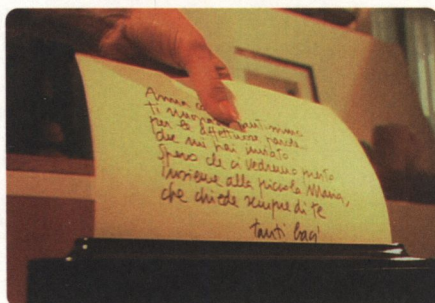 Anna
ti
per le affettuose parole
che mi hai inviato.
Spero che ci vedremo presto
insieme alla piccola Maria,
che chiede sempre di te
tanti baci